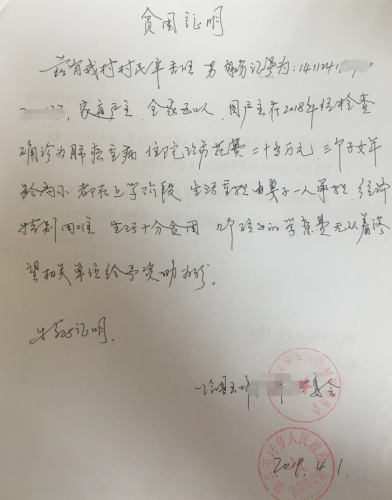 贫困证明
兹有我村村民 男 身份证号为:1411241
家庭户主 全家五口人 因户主在2018年经检查
确诊为肺癌重病 住院治疗花费二十多万元 三个子女年
龄尚小 都在上学阶段 生活重担由妻子一人承担 经济
特别困难 生活十分贫困 几个孩子的学杂费无从着落
望相关单位给予资助
特此证明.
委会
2019.4.1